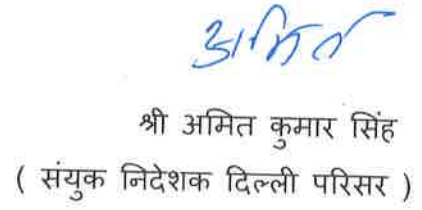 अमित
श्री अमित कुमार सिंह
( संयुक निदेशक दिल्ली परिसर )